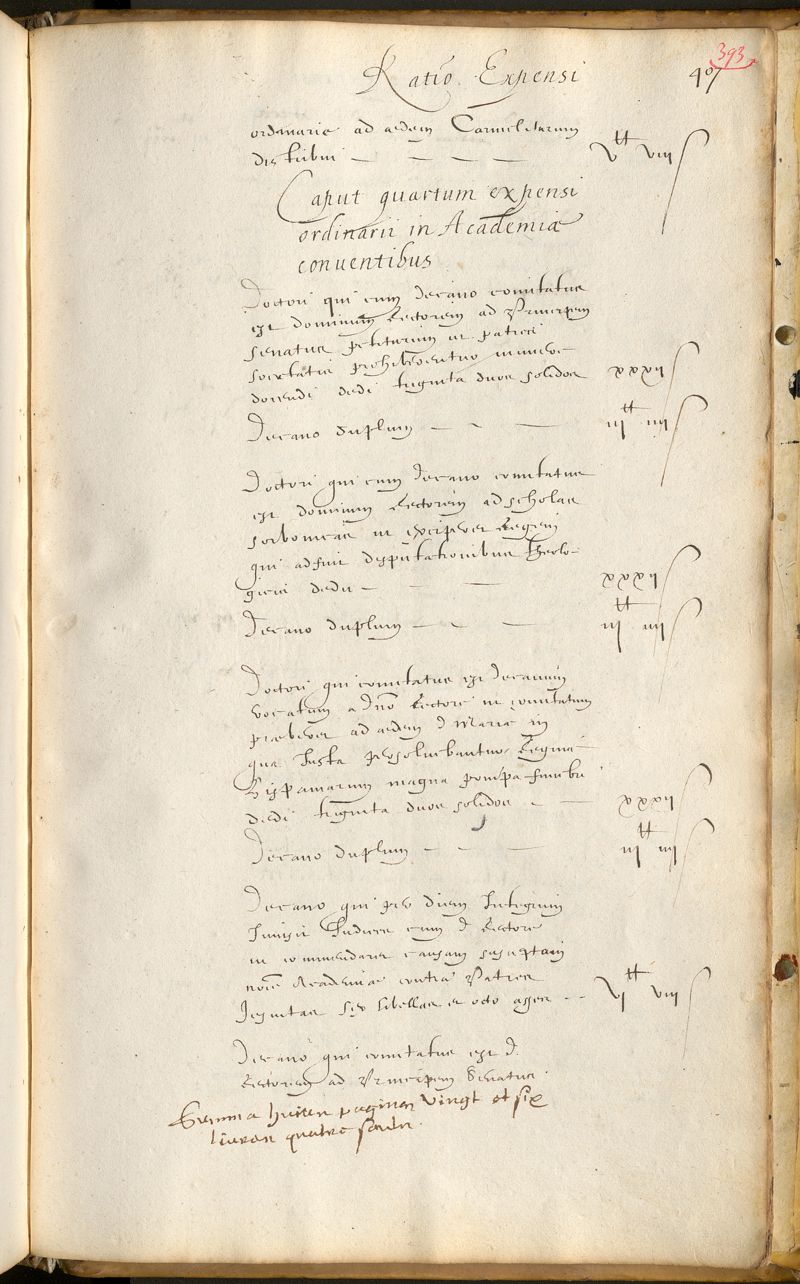 393
Ratio Expensi 407
ordinarie ad aedem Carmelitarum
distribui — — — — v tt viii s
Caput quartum expensi
ordinarii in Academiæ
conventibus
Doctori qui cum Decano comitatus
est dominum Rectorem ad Principem
senatus petiturum ut patres
societatis prohiberentur munere
docendi dedi triginta duos solidos xxxii s
Decano duplum — — — iii tt iiii s
Doctori qui cum Decano comitatus
est dominum Rectorem ad scholas
sorbonicas ut exciperet Regem
qui adfuit disputationibus theolo-
gicis dedi — — — xxxii s
Decano duplum — — — iii tt iiii s
Doctori qui comitatus est Decanum
vocatum a dno Rectore ut comitatum
præberet ad aedem d Mariæ in
qua Justa persolvebantur Reginæ
Hispaniarum magna pompa funebri
dedi triginta duos solidos — — xxxii s
Decano duplum — — — iii tt iiii s
Decano qui per diem Integrum
Invisit Iudices cum d Rectore
ut commendaret causam susceptam
noie Academiæ contra Patres
Jesuitas sex libellas et octo asses — — vi tt viii s
Decano qui comitatus est d.
Rectorem ad Principem Senatus.
Summa huius paginae vingt et six
livres quatre solz.